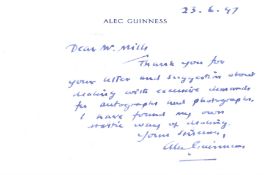 23.6.97
ALEC GUINNESS
Dear Mr. Mills
Thank you for
your letter and suggestion about
dealing with excessive demands
for autographs and photographs.
I have found my own
way of dealing.
Yours sincerely,
Alec Guinness